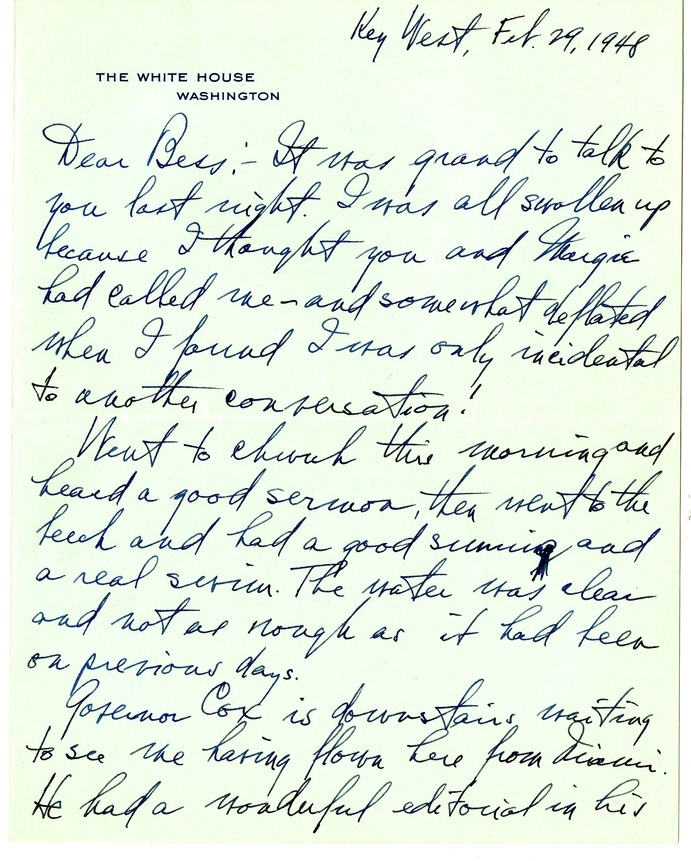 Key West, Feb. 29, 1948
THE WHITE HOUSE
WASHINGTON
Dear Bess:- It was grand to talk to
you last night. I was all swollen up
because I thought you and Margie
had called me - and somewhat deflated
when I found I was only incidental
to another conversation!
Went to church this morning and
heard a good sermon, then went to the
beech and had a good sunning and
a real swim. The water was clear
and not as rough as it had been
on previous days.
Governor Cox is downstairs waiting
to see me having flown here from Miami.
He had a wonderful editorial in his